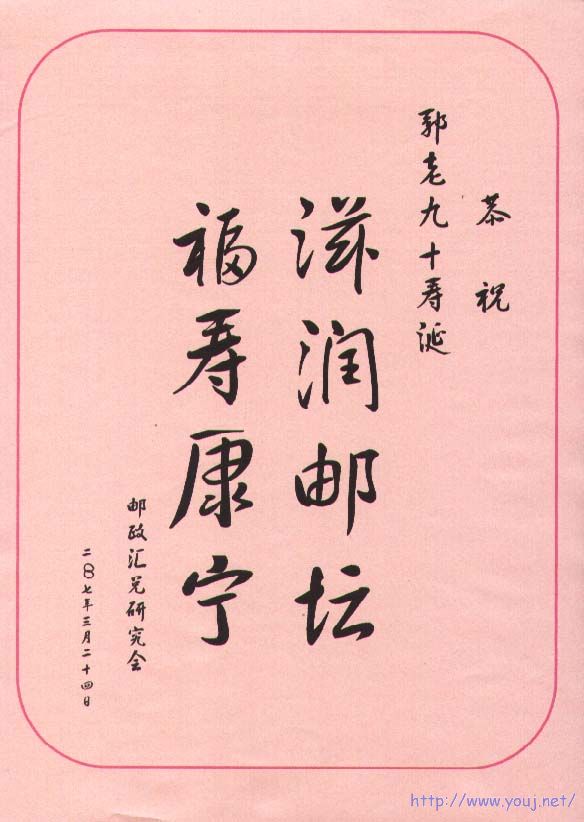 恭祝
郭老九十寿诞
滋润邮坛
福寿康宁
邮政汇兑研究会
二〇〇七年三月二十四日
http://www.youj.net/